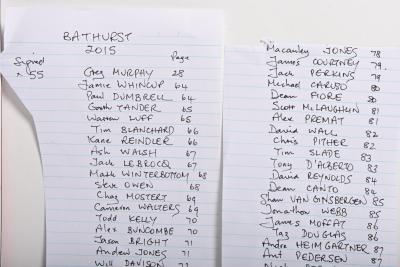 BATHURST
2015
Signed Page
x 55 Greg MURPHY 28
Jamie WHINCUP 64
Paul DUMBRELL 64
Garth TANDER 65
Warren LUFF 65
Tim BLANCHARD 66
Kane REINDLER 66
Ash WALSH 67
Jack LEBROCQ 67
Matt WINTERBOTTOM 68
Steve OWEN 68
Chaz MOSTERT 69
Cameron WALTERS 69
Todd KELLY 70
Alex BUNCOMBE 70
Jason BRIGHT 71
Andrew JONES 71
Will DAVISON
Macauley JONES 78
James COURTNEY 79
Jack PERKINS 79
Michael CARUSO 80
Dean FIORE 80
Scott McLAUGHLIN 81
Alex PREMAT 81
David WALL 82
Chris PITHER 82
Tim SLADE 83
Tony D'ALBERTO 83
David REYNOLDS 84
Dean CANTO 84
Shaun VAN GINSBERGEN 85
Jonathon WEBB 85
James MOFFAT 86
Taz DOUGLAS 86
Andre HEIMGARTNER 87
Ant PEDERSEN 87